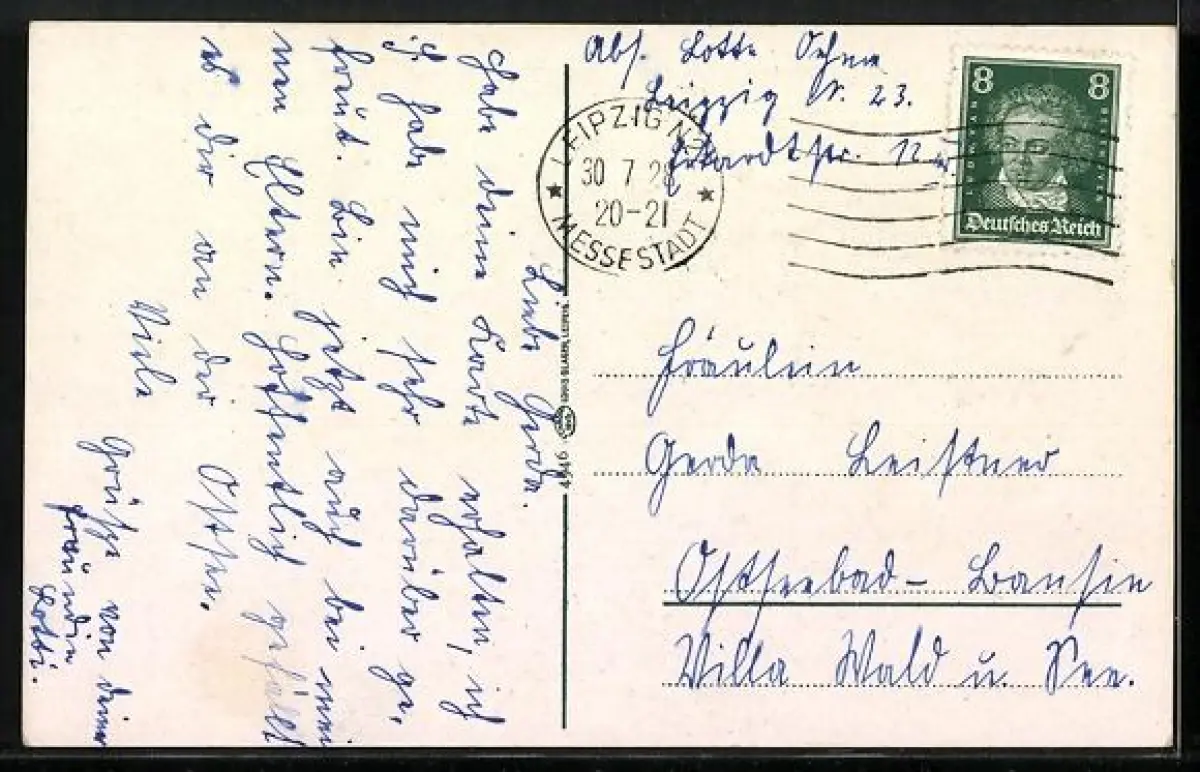 Liebe Gerda.
Habe deine Karte erhalten, ich
ich habe mich sehr darüber ge-
freut. Bin jetzt auch bei mei
nen Eltern. Hoffentlich gefällt
es dir an der Ostsee.
Viele
Grüße von deiner
Freundin
Lotti.
4546
Abs. Lotte
Leipzig N. 23.
LEIPZIG N
30 7 28
20-21
MESSESTADT
8 8
LUDWIG VAN BEETHOVEN
Deutsches Reich
Fräulein
Gerda Leistner
Ostseebad - Bansin
Villa Wald u. See.